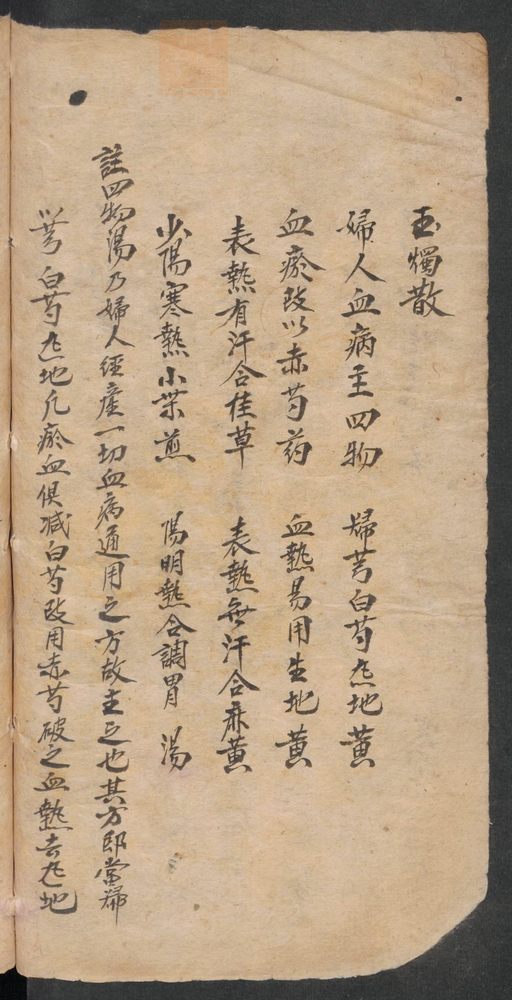 玉燭散
婦人血病主四物　歸芎白芍熟地黄
血瘀改以赤芍药　血熱易用生地黄
表熱有汗合桂草　表熱無汗合麻黄
少陽寒熱小柴煎　陽明熱合調胃湯
註四物湯乃婦人經產一切血病通用之方故主之也其方即當歸
川芎白芍熟地凡瘀血俱减白芍改用赤芍破之血熱去熟地